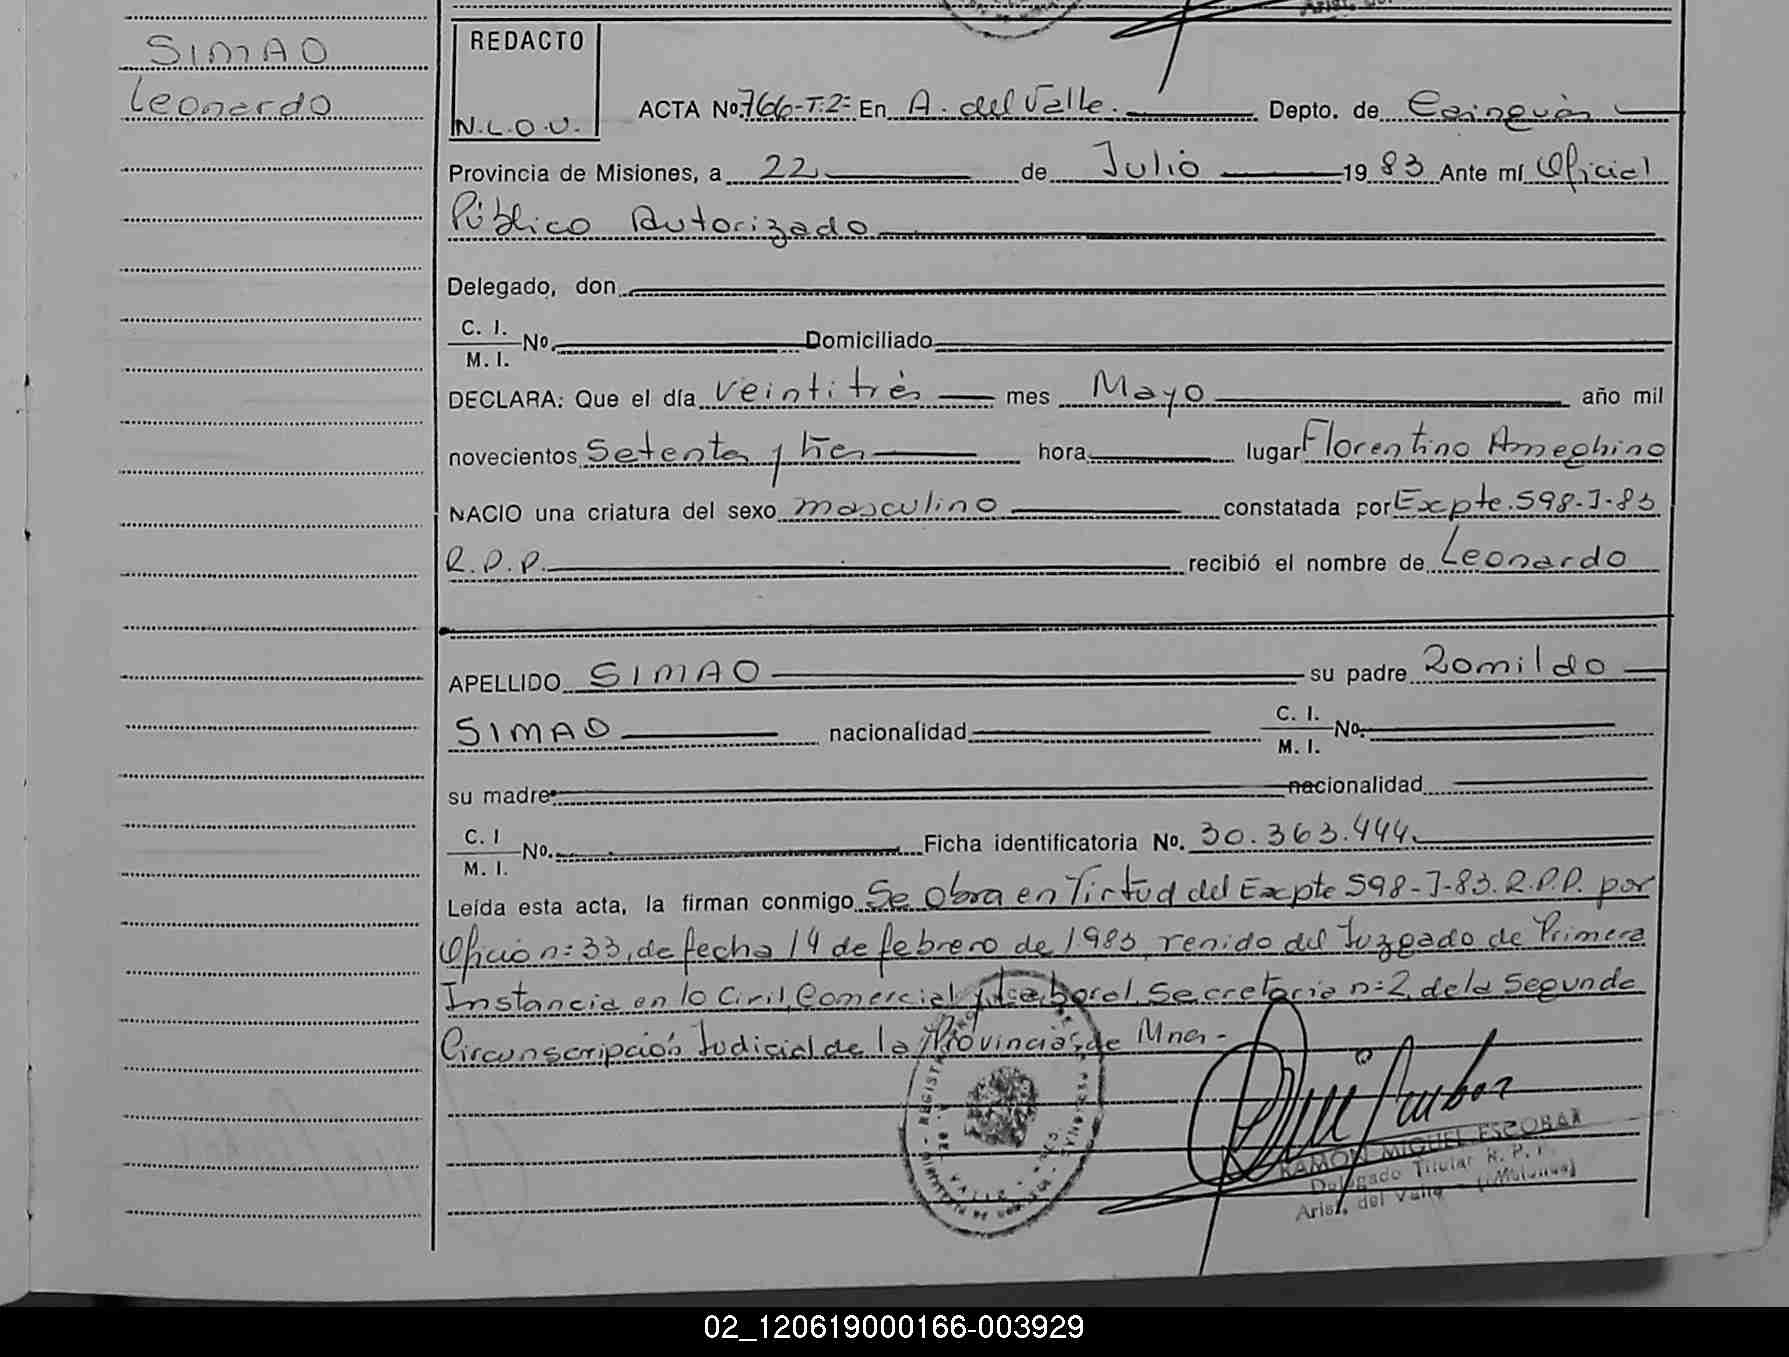 SIMAO
Leonardo
REDACTO
N.L.O.V.
ACTA Nº 766-T:2= En A. del Valle. Depto. de Cainguás
Provincia de Misiones, a 22 de Julio 1983 Ante mí Oficial
Público Autorizado
Delegado, don
C. I.
M. I. Nº. Domiciliado
DECLARA: Que el día veintitrés mes Mayo año mil
novecientos Setenta y tres hora lugar Florentino Ameghino
NACIO una criatura del sexo masculino constatada por Excpte. 598-J-83
R.P.P. recibió el nombre de Leonardo
APELLIDO SIMAO su padre Romildo
SIMAO nacionalidad C. I.
M. I. Nº.
su madre nacionalidad
C. I
M. I. Nº. Ficha identificatoria Nº. 30.363.444.
Leída esta acta, la firman conmigo Se Obra en Virtud del Excpte 598-J-83. R.P.P. por
Oficio n:33, de fecha 14 de febrero de 1983, venido del Juzgado de Primera
Instancia en lo Civil, Comercial y Laboral, Secretaria n:2, de la Segunda
Circunscripción Judicial de la Provincia de Mnes-
RAMON MIGUEL ESCOBAR
Delegado Titular R. P. P.
Arist. del Valle - (Misiones)
02_120619000166-003929